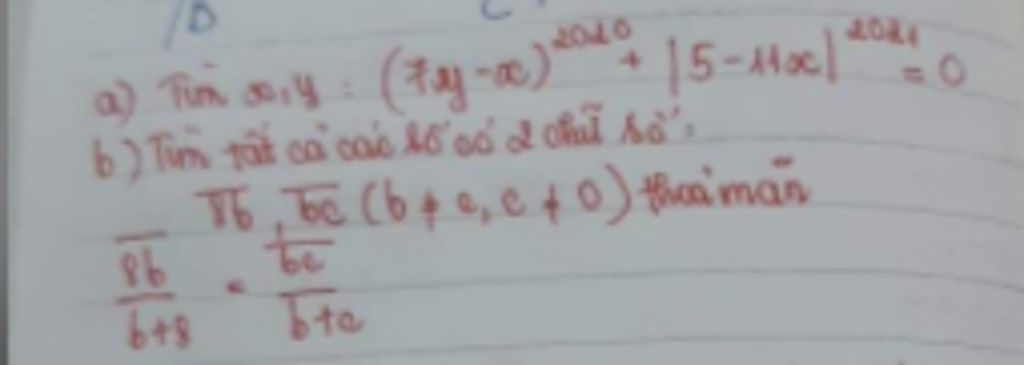 a) Tìm x,y : (7y-x)^2020 + |5-11x|^2021 = 0
b) Tìm tất cả các số có 2 chữ số:
8b, bc (b ≠ c, c ≠ 0) thoả mãn
8b/b+8 = bc/b+c